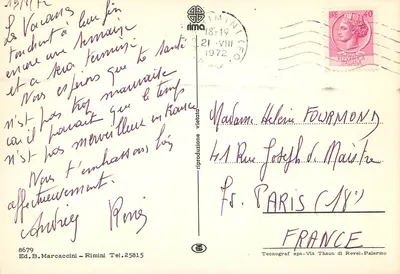 19/8/72
Les Vacances
tendent à leur fin
encore une semaine
et ce sera terminé
Nous espérons que ta santé
n'est pas trop mauvaise
car il paraît que le temps
n'est pas merveilleux en France
Nous t'embrassons bien
affectueusement.
Andrée René
8679
Ed. B. Marcaccini - Rimini Tel. 25815
rima
riproduzione vietata
RIMINI
18-19
21-VIII
1972
40
Madame Hélène FOURMOND
41 Rue Joseph de Maistre
75. PARIS (18e)
FRANCE
Tecnograf spa-Via Thaon di Revel-Palermo